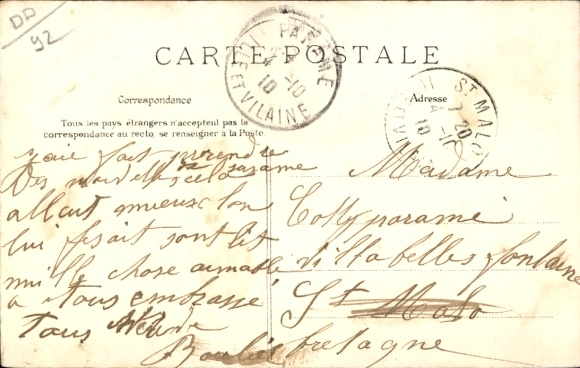 DP
92
CARTE POSTALE
PARAMÉ
4
10 -10
ILLE ET VILAINE
ST MALO
7 20
4 -10
10
Correspondance
Adresse
Tous les pays étrangers n'acceptent pas la
correspondance au recto, se renseigner à la Poste
J'aie fait prendre
Des nouvelles de
allait mieux lon
lui fesait sont lit
mille chose aimable
a tous embrasse
tous
Madame
Colly paramé
villa belles fontaine
St Malo
bretagne